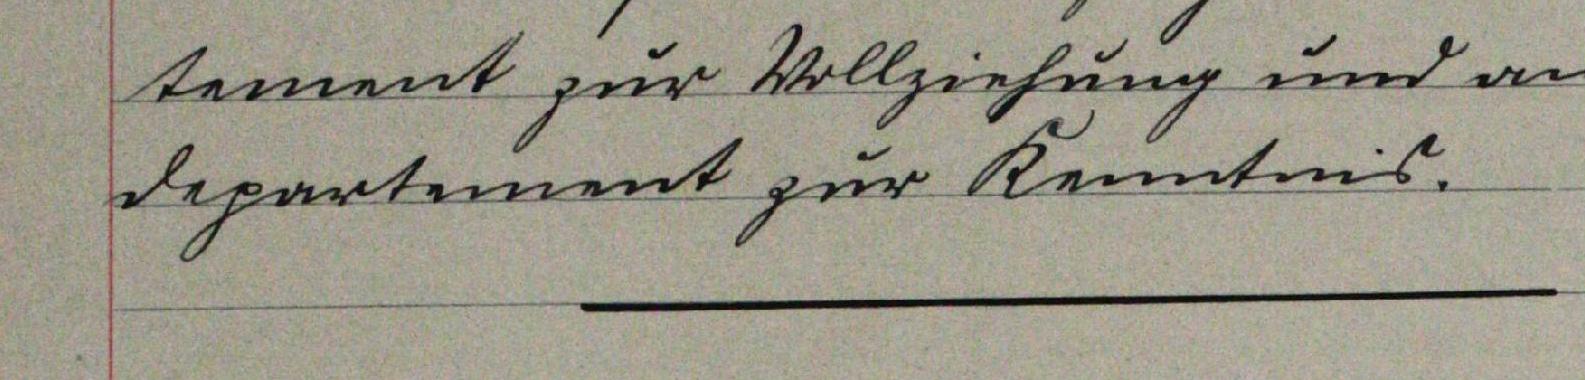 tement zur Vollziehung und an
departement zur Kenntnis.